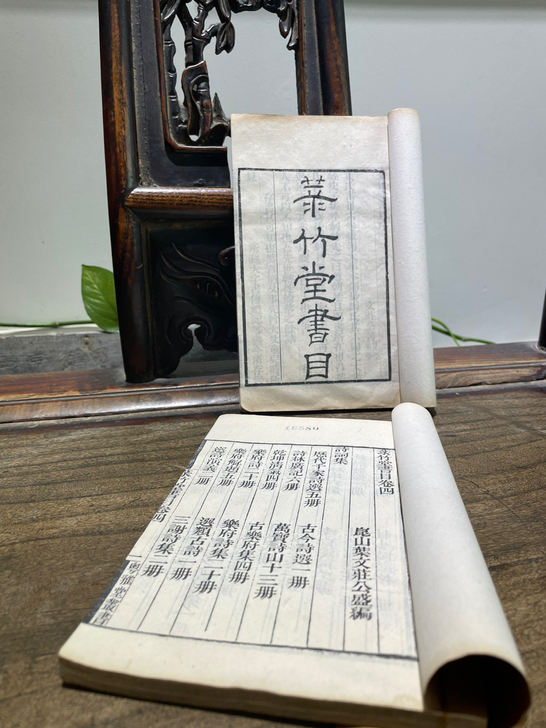 菉竹堂書目
菉竹堂書目卷四
崑山葉文莊公盛編
詩詞集
歷代千家詩選五册
古今詩選一册
詩林廣記六册
萬寶詩山十三册
乾坤清氣四册
古樂府集四册
樂府詩二十册
樂府詩集二十册
樂府解題五册
選類古詩一册
選詩演義一册
三謝詩集一册
粤雅堂叢書